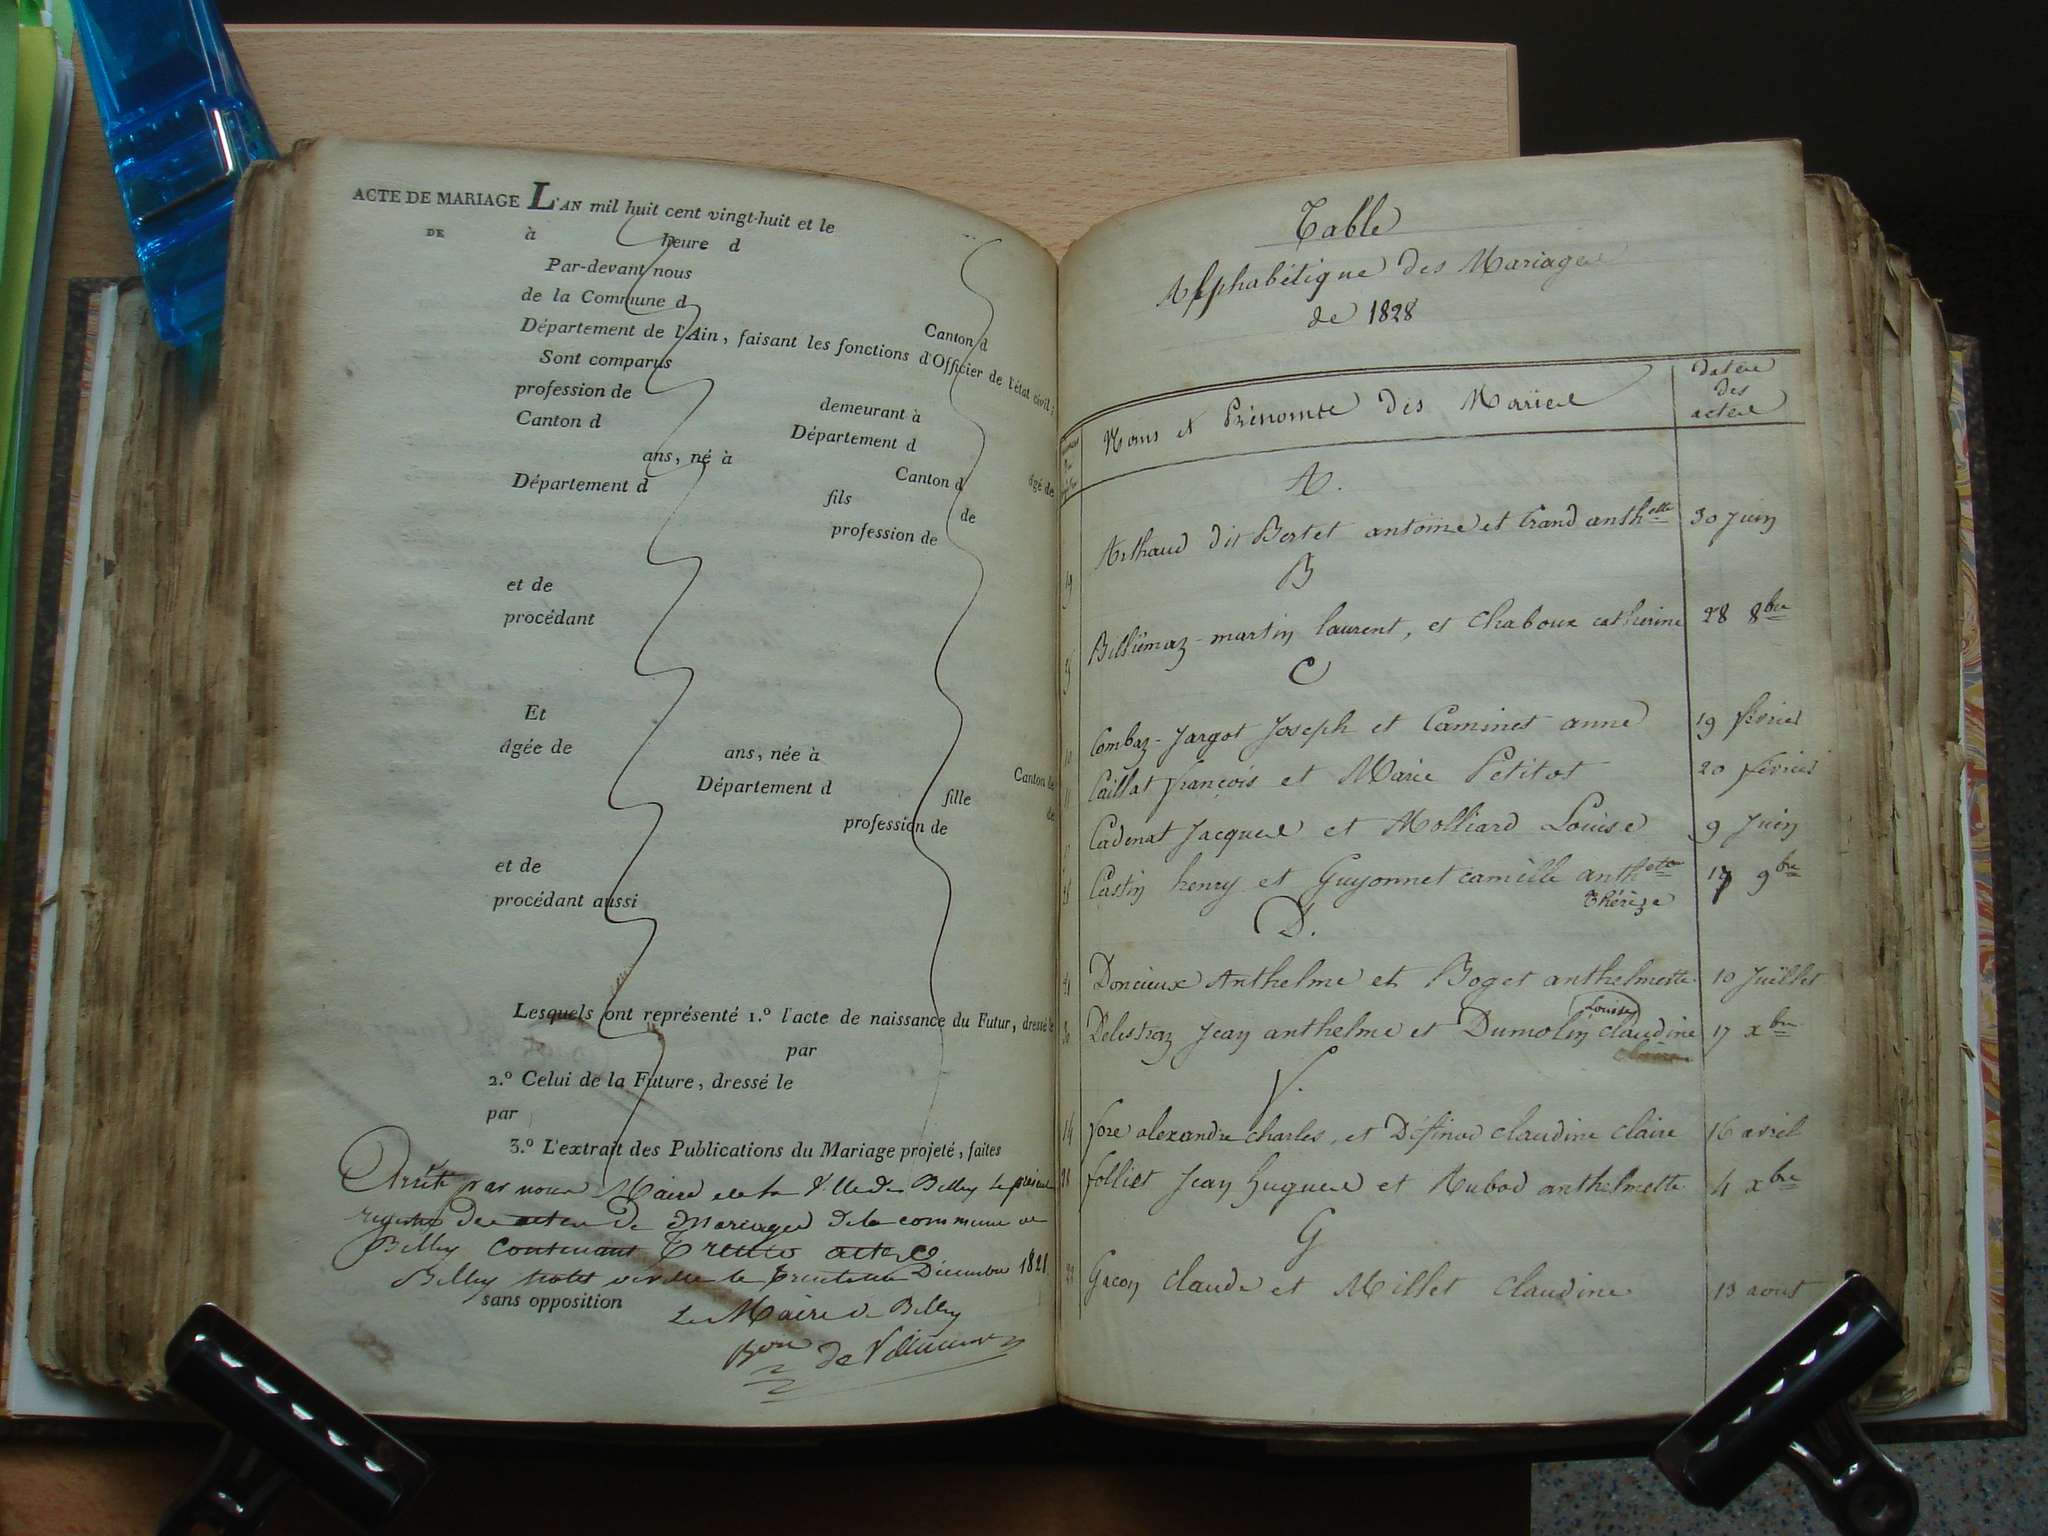 ACTE DE MARIAGE L'AN mil huit cent vingt-huit et le
DE à heure d
Par-devant nous
de la Commune d Canton d
Département de l'Ain, faisant les fonctions d'Officier de l'état civil;
Sont comparus
profession de demeurant à
Canton d Département d âgé de
ans, né à Canton d
Département d fils de
profession de
et de
procédant
Et
âgée de ans, née à Canton de
Département d fille de
profession de
et de
procédant aussi
Lesquels ont représenté 1.º l'acte de naissance du Futur, dressé le
par
2.º Celui de la Future, dressé le
par
3.º L'extrait des Publications du Mariage projeté, faites
Arrêté par nous Maire de la Ville de Belley le présent
registre des actes de Mariages de la commune de
Belley contenant Trente actes
Belley le Décembre 1828
sans opposition
Le Maire de Belley
Bon de
Table
Alphabétique des Mariages
de 1828
Noms et Prénoms des Mariés
dates
des
actes
A.
19 Arthaud dit Bertet antoine et Grand anthelte 30 Juin
B
Billiemaz-martin laurent, et Chaboux catherine 28 8bre
C
10 Combaz-Jargot Joseph et Caminet anne 19 février
11 Caillat françois et Marie Petitot 20 février
Cadenat Jacques et Molliard Louise 9 Juin
Castin henry et Guyonnet camille anthette 17 9bre
Thérèze
D.
21 Doncieux Anthelme et Boget anthelmette 10 Juillet
Louise
30 Delestraz Jean anthelme et Dumolin claudine 17 xbre
F.
14 fore alexandre charles, et Définod claudine claire 16 avril
28 folliet Jean huguese et Rubod anthelmette 4 xbre
G
Gacon claude et Millet claudine 13 aout